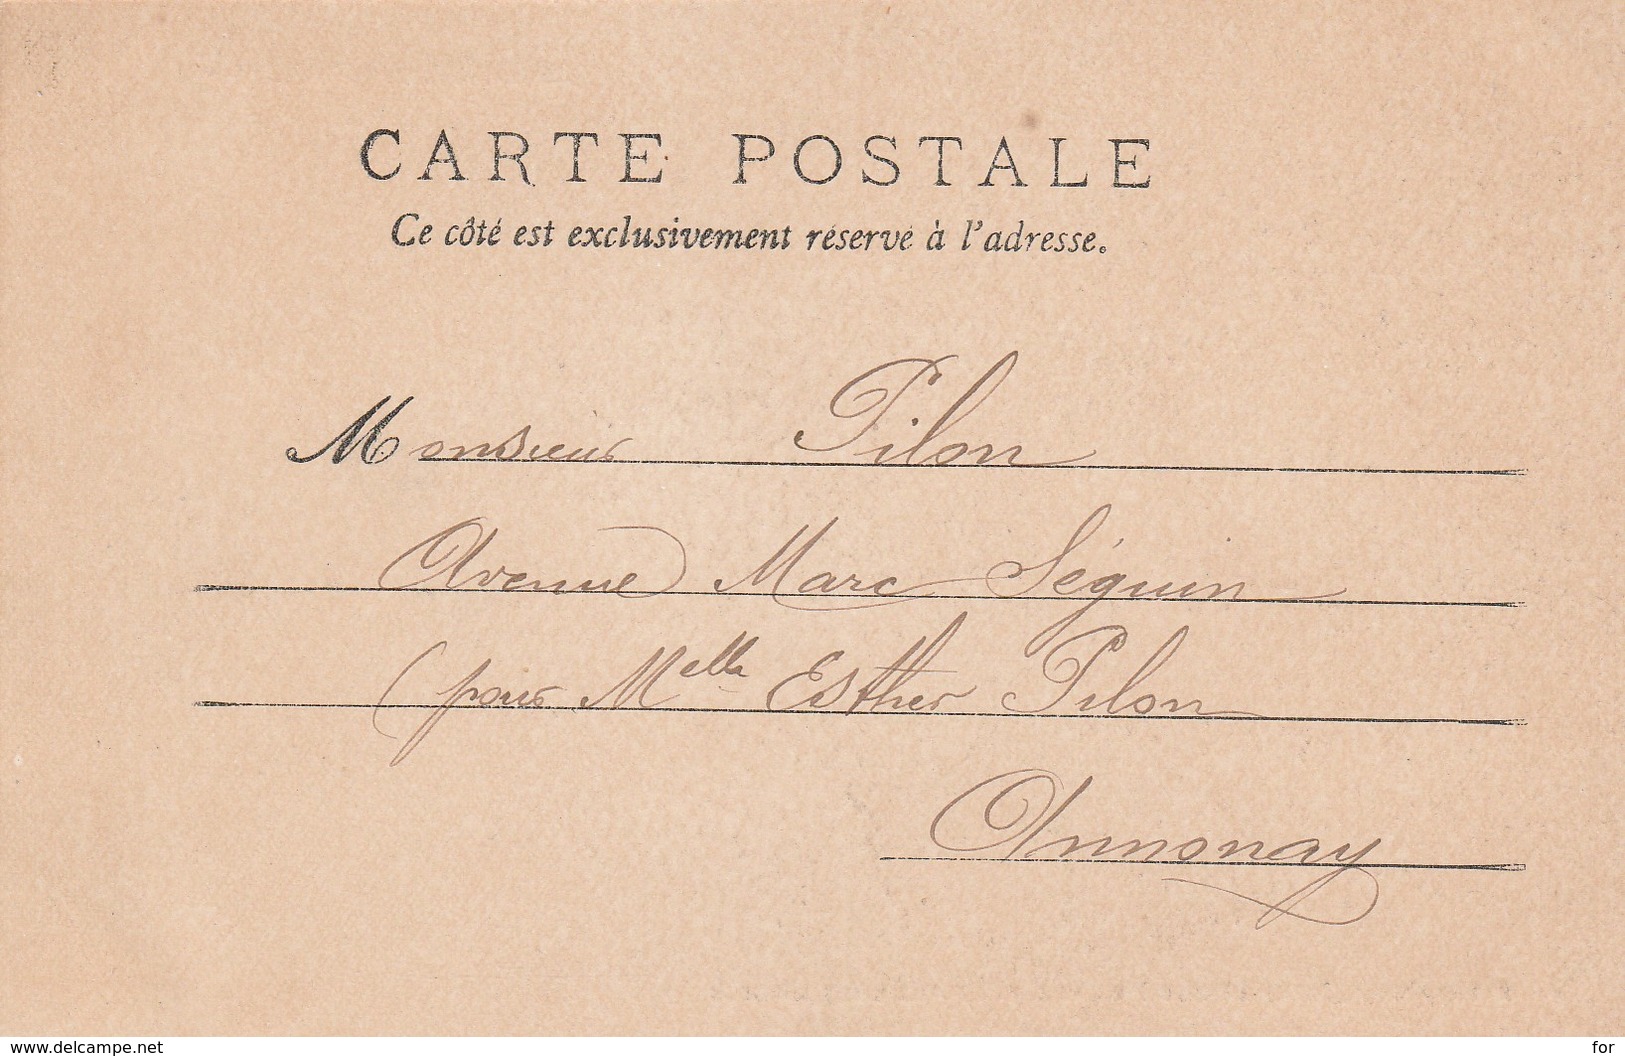 CARTE POSTALE
Ce côté est exclusivement réservé à l'adresse.
Monsieur Pilon
Avenue Marc Séguin
(pour Melle Esther Pilon
Annonay
www.delcampe.net
for